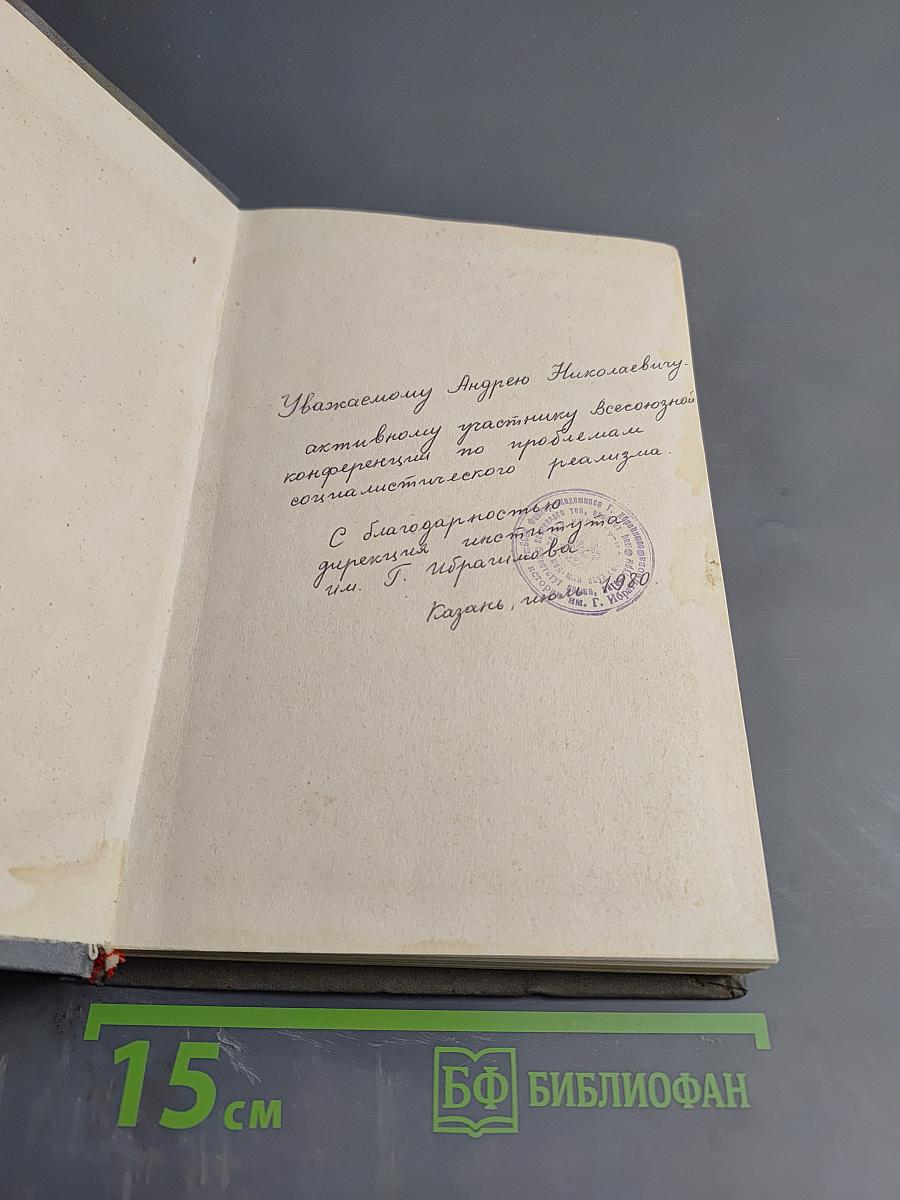 Уважаемому Андрею Николаевичу-
активному участнику Всесоюзной
конференции по проблемам
социалистического реализма.
С благодарностью
дирекция института
им. Г. Ибрагимова
Казань, июль 1980.
им. Г. Ибрагимова
15 см
БФ БИБЛИОФАН